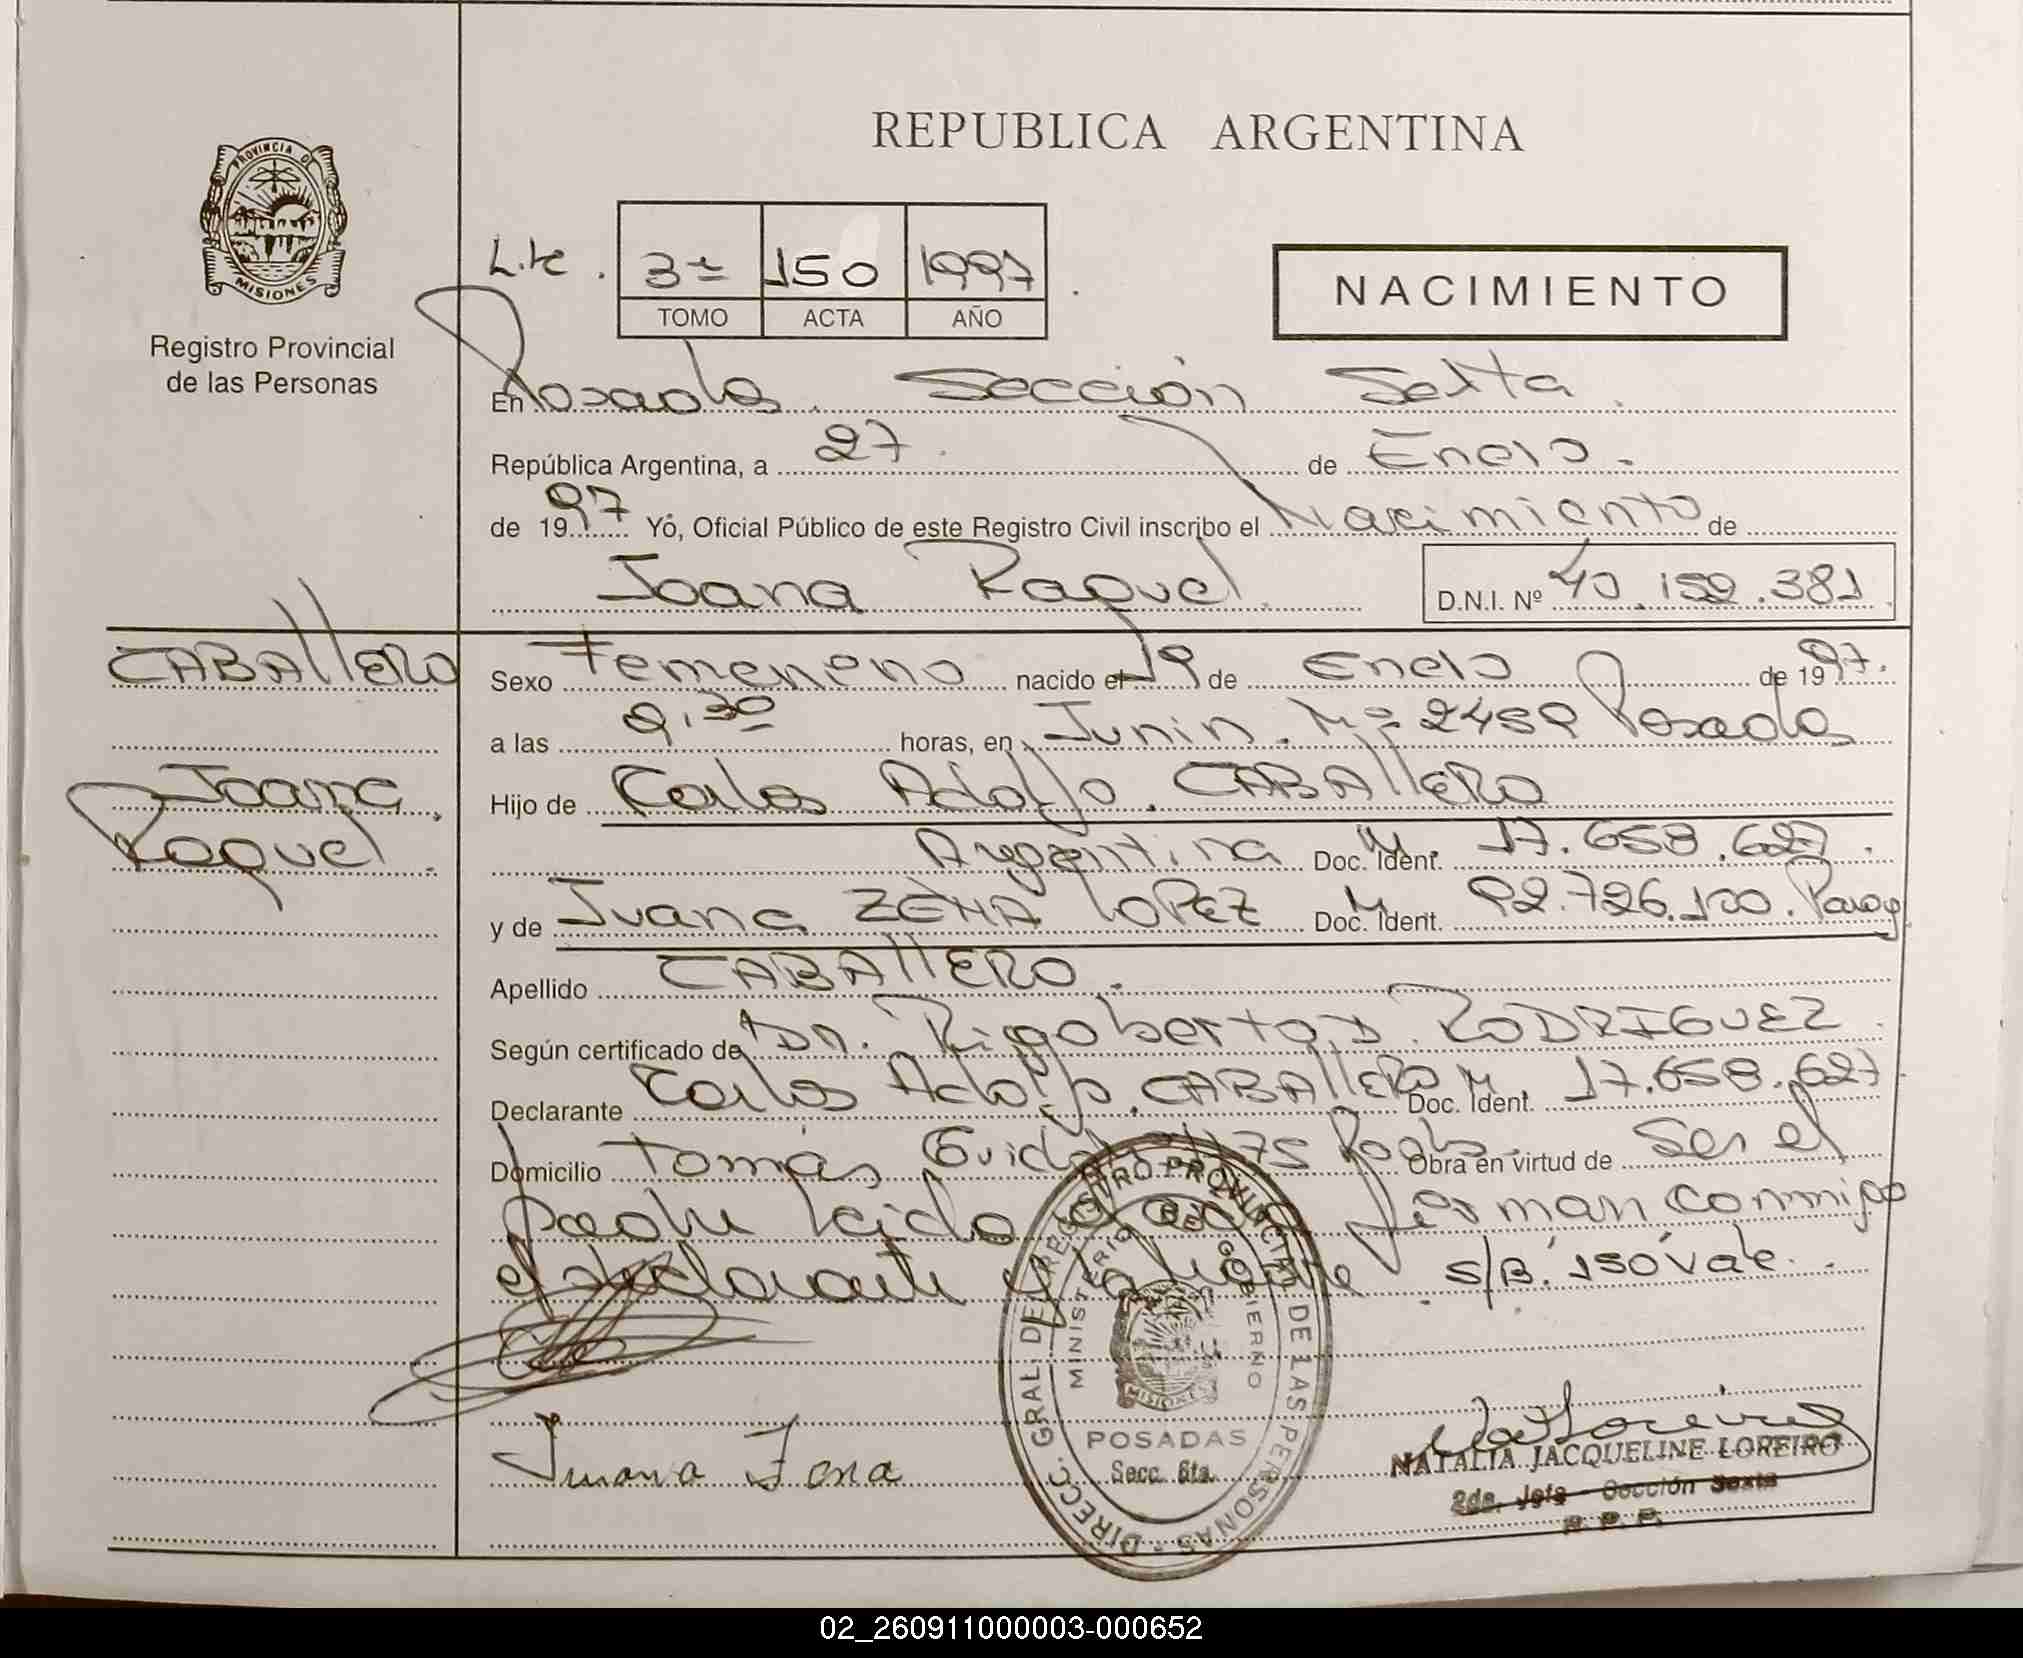 REPUBLICA ARGENTINA
PROVINCIA DE
MISIONES
Registro Provincial
de las Personas
3º 150 1997
TOMO ACTA AÑO
NACIMIENTO
En Posadas. Sección Sexta.
República Argentina, a 27 de Enero.
de 1997 Yó, Oficial Público de este Registro Civil inscribo el Nacimiento de
Joana Raquel D.N.I. Nº 40.152.381
CABAllERO
Joana
Raquel.
Sexo Femenino nacido el 19 de Enero de 1997.
a las 9,30 horas, en Junin. Nº 2459 Posadas
Hijo de Carlos Adolfo. CABAllERO
Argentina Doc. Ident. M. 17.658.627.
y de Juana ZENA LOPEZ Doc. Ident. M 92.726.100. Parag
Apellido CABAllERO.
Según certificado de Dr. Rigoberto D. RODRIGUEZ
Declarante Carlos Adolfo. CABAllERO Doc. Ident. M. 17.658.627
Domicilio Tomás Guido 1175 Obra en virtud de Ser el
padre leida el acta firman conmigo
el declarante y la S/B. "150" vale.
Juana Zena
DIRECC. GRAL. DEL REGISTRO PROVINCIAL DE LAS PERSONAS
MINISTERIO DE GOBIERNO
MISIONES
POSADAS
Secc. 6ta.
NATALIA JACQUELINE LOREIRO
2da. Jefa - Sección Sexta
R. P. P.
02_260911000003-000652